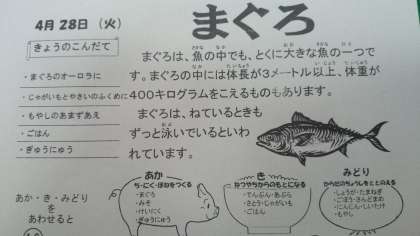 4月28日（火）
まぐろ
きょうのこんだて
・まぐろのオーロラに
・じゃがいもとやさいのふくめに
・もやしのあまずあえ
・ごはん
・ぎゅうにゅう
まぐろは、魚の中でも、とくに大きな魚の一つで
す。まぐろの中には体長が3メートル以上、体重が
400キログラムをこえるものもあります。
まぐろは、ねているときも
ずっと泳いでいるといわ
れています。
あか・き・みどり
を
あわせると
あか
ち・にく・ほねをつくる
・まぐろ
・みそ
・けいにく
・ぎゅうにゅう
き
ねつやちからのもとになる
・でんぷん・あぶら
・さとう・じゃがいも
・ごはん
みどり
からだのちょうしをととのえる
・しょうが・たまねぎ
・ごぼう・さんどまめ
・にんじん・しいたけ
・もやし